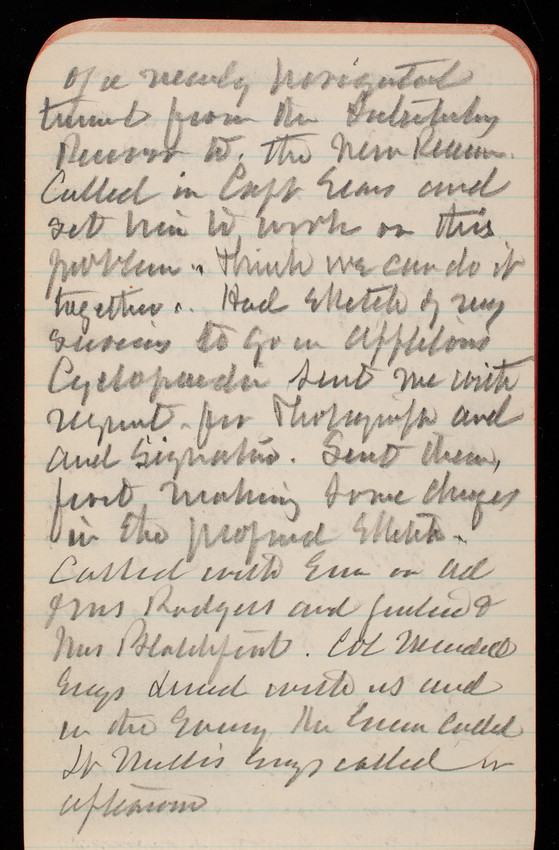 of a newly navigated
tunnel from the
Reservoir to. the New Reservr.
Called in Capt Sears and
set him to work on this
problem. Think we can do it
together. Had Sketch of my
services to go in Appletons
Cyclopaedia sent me with
request for Photograph and
and Signature. Sent them,
first making some changes
in the proposed Sketch.
Called with Em on Ad
& Mrs Rodgers and
Mrs Blatchford. Col Mendell
Engs dined with us and
in the Evening the called
Lt Engs called in
afternoon